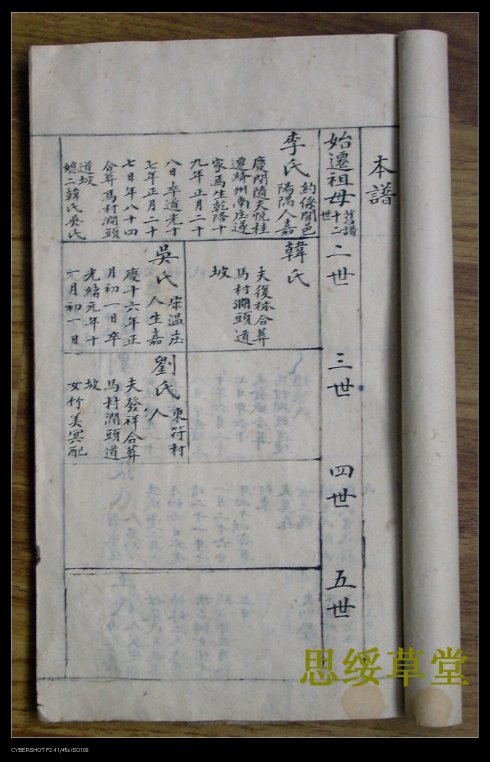 本譜
始遷祖母 舊譜十二世
二世
三世
四世
五世
李氏 約係聞邑
陽隅人嘉
慶間隨夫悅桂
遷絳州南庄遂
家焉生乾隆十
九年正月二十
八日卒道光十
七年正月二十
七日年八十四
合葬馬村澗頭
道坡
媳二韓氏吳氏
韓氏
夫復林合葬
馬村澗頭道
坡
吳氏 柴温庄
人生嘉
慶十六年正
月初一日卒
光緒元年十
一月初一日
劉氏 東符村
人
夫發祥合葬
馬村澗頭道
坡
女竹美冥配
思绥草堂
CYBERSHOT F2.4 1/45s ISO100